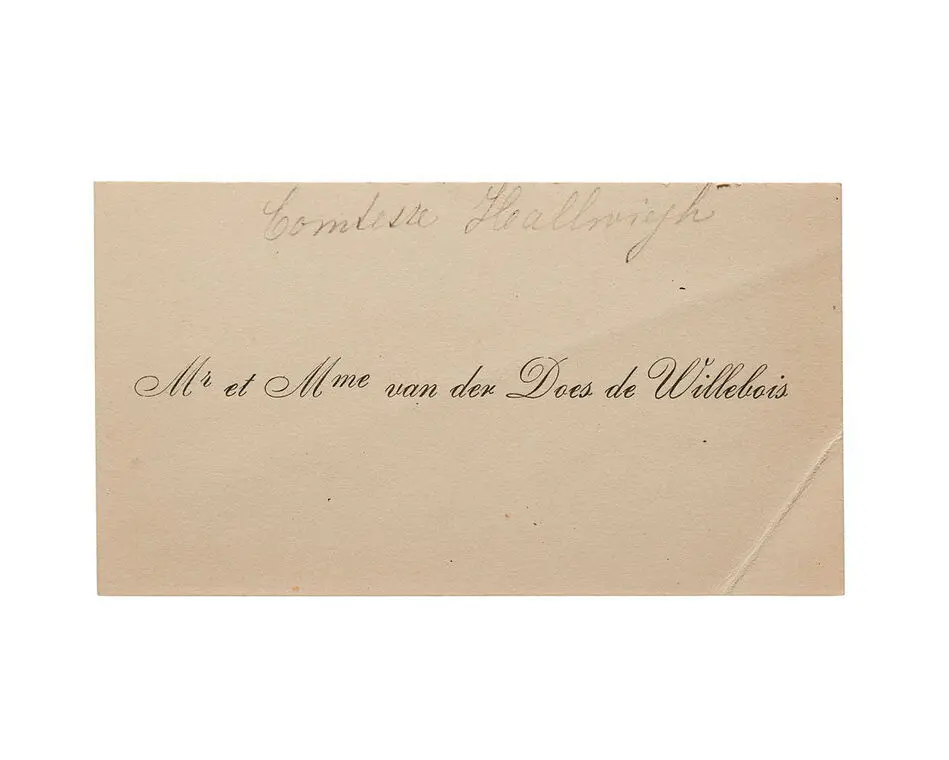 Comtesse Hallwigh
Mr et Mme van der Does de Willebois